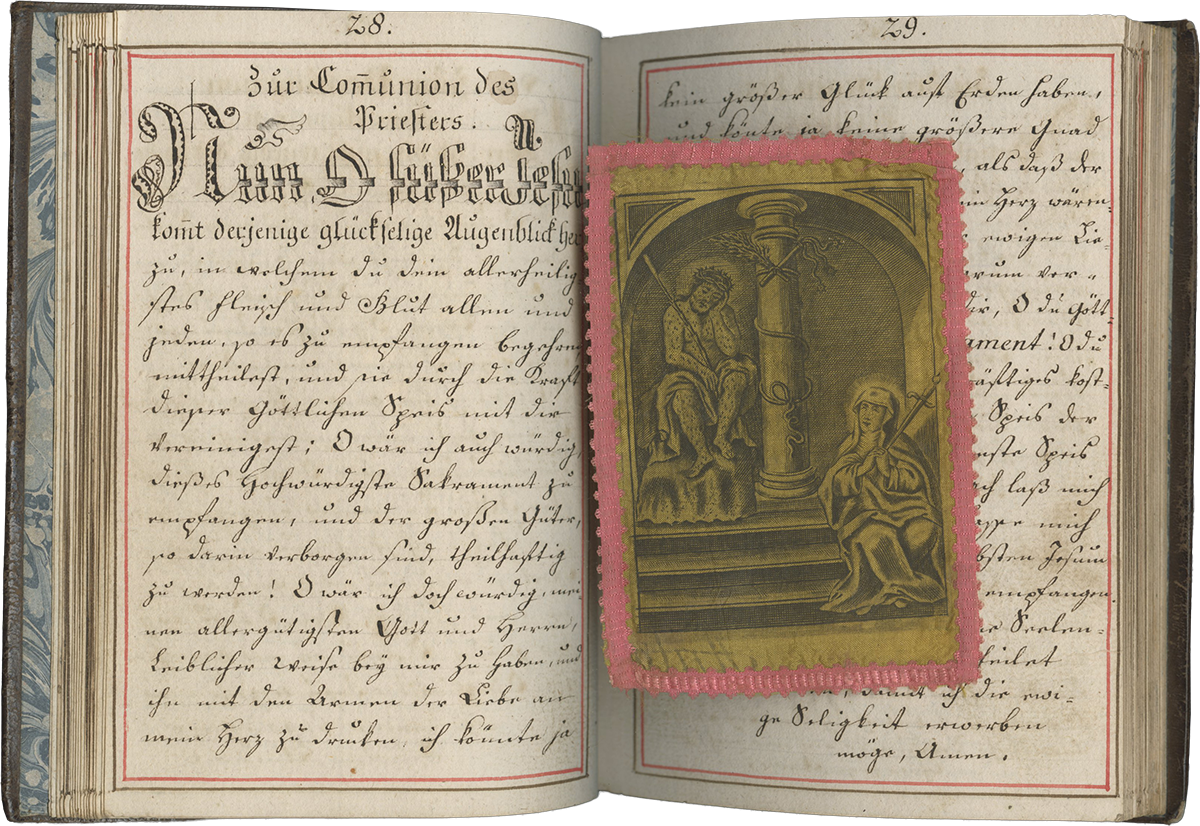 28.
Zur Com̅union des
Priesters.
Nun, O süßer Jesu
kom̅t derjenige glückselige Augenblick her
zu, in welchem du dein allerheilig
stes Fleisch und Blut allen und
jeden, so es zu empfangen begehren
mittheilest, und sie durch die Kraft
dieser Göttlichen Speis mit dir
vereinigest; O wär ich auch würdig,
dießes Hochwürdigste Sakrament zu
empfangen, und der großen Güter,
so darin verborgen sind, theilhafftig
zu werden! O wär ich doch würdig, mei
nen allergütigsten Gott und Herrn,
Leiblicher weise bey mir zu haben, und
ihn mit den Armen der Liebe an
mein Herz zu drucken, ich könnte ja
29.
kein größer Glück auf Erden haben,
und könte ja keine größere Gnad
, als daß der
ein Herz wären-
ewigen Lie-
arum ver-
dir, O du Gött-
ament! O du
kräftiges kost-
Speis der
enste Speis
ach laß mich
asse mich
bsten Jesum
empfangen.
ne Seelen-
theilet
, damit ich die ewi-
ge Seligkeit erwerben
möge, Amen.